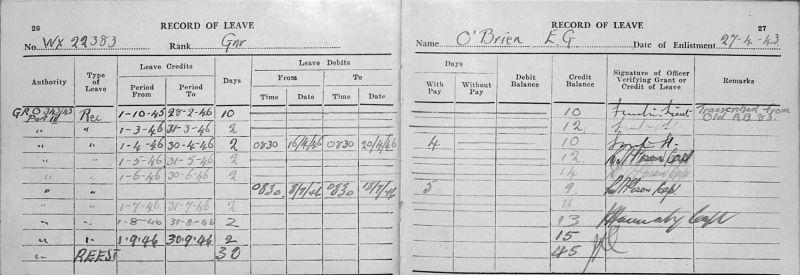 26
RECORD OF LEAVE
No. WX 22383 Rank Gnr
Authority
Type of Leave
Leave Credits
Period From
Period To
Days
Leave Debits
From
To
Time Date Time Date
GRO 343/45 Part II Rec 1-10-45 28-2-46 10
" " 1-3-46 31-3-46 2
" " 1-4-46 30-4-46 2 0830 16/4/46 0830 20/4/46
" " 1-5-46 31-5-46 2
" " 1-6-46 30-6-46 2
" " 0830 8/7/46 0830 13/7/46
" " 1-7-46 31-7-46 2
" " 1-8-46 31-8-46 2
" " 1.9.46 30.9.46 2
" REEST 30
27
RECORD OF LEAVE
Name O'Brien E.G Date of Enlistment 27-4-43
Days
With Pay
Without Pay
Debit Balance
Credit Balance
Signature of Officer Verifying Grant or Credit of Leave
Remarks
10 Transcribed from
12 Old AB 83.
4 10
12 Capt
14 Capt
5 9 Capt
11
13 Capt
15
45